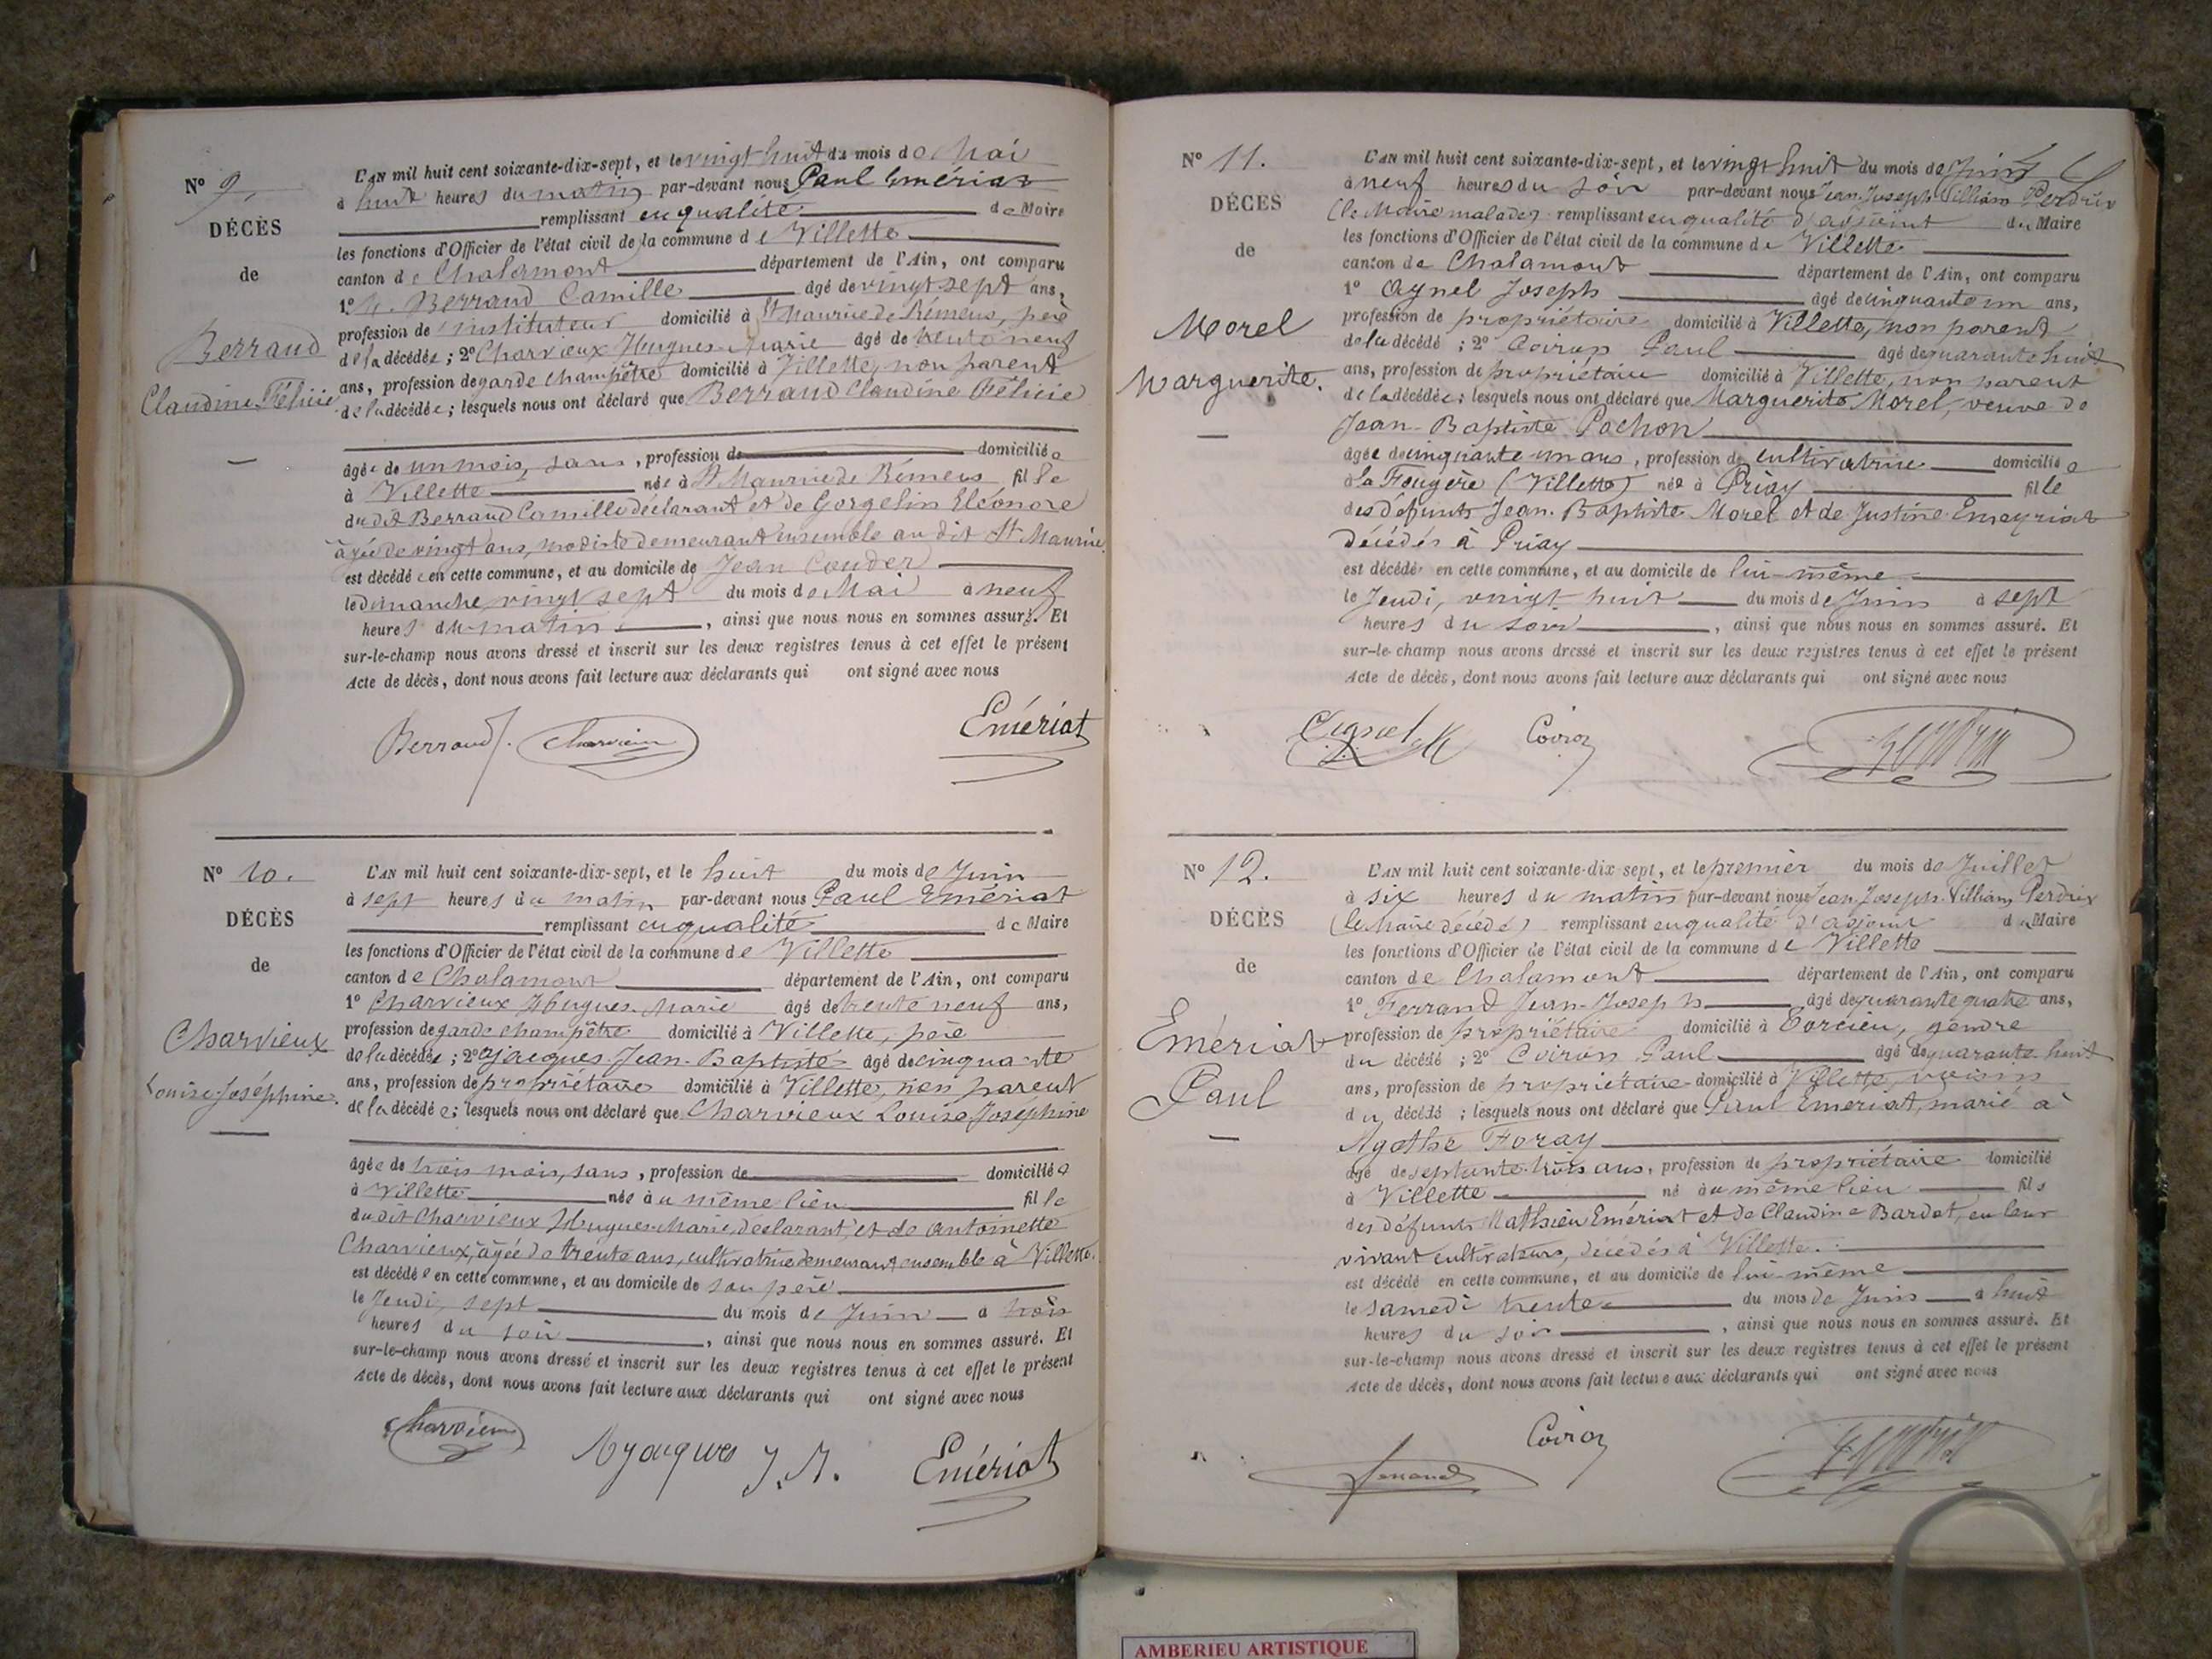 Nº 9.
DÉCÈS
de
Berraud
Claudine Félicie
L'AN mil huit cent soixante-dix-sept, et le vingt huit du mois de Mai
à huit heures du matin par-devant nous Paul Emériat
remplissant en qualité de Maire
les fonctions d'Officier de l'état civil de la commune de Villette
canton de Chalamont département de l'Ain, ont comparu
1º Berraud Camille âgé de vingt sept ans,
profession de instituteur domicilié à St Maurice de Rémens, père
de la décédée; 2º Charvieux Hugues-Marie âgé de trente neuf
ans, profession de garde champêtre domicilié à Villette, non parent
de la décédée; lesquels nous ont déclaré que Berraud Claudine Félicie
âgée de un mois, sans, profession de domiciliée
à Villette née à St Maurice de Rémens fille
du dit Berraud Camille déclarant et de Gorgelin Eléonore
âgée de vingt ans, modiste demeurant ensemble au dit St Maurice
est décédée en cette commune, et au domicile de Jean Couder
le dimanche, vingt sept du mois de Mai à neuf
heures du matin, ainsi que nous nous en sommes assuré. Et
sur-le-champ nous avons dressé et inscrit sur les deux registres tenus à cet effet le présent
Acte de décès, dont nous avons fait lecture aux déclarants qui ont signé avec nous
Berraud Charvieux Emériat
Nº 10.
DÉCÈS
de
Charvieux
Louise-Joséphine.
L'AN mil huit cent soixante-dix-sept, et le huit du mois de Juin
à sept heures du matin par-devant nous Paul Emériat
remplissant en qualité de Maire
les fonctions d'Officier de l'état civil de la commune de Villette
canton de Chalamont département de l'Ain, ont comparu
1º Charvieux Hugues-Marie âgé de trente neuf ans,
profession de garde champêtre domicilié à Villette, père
de la décédée; 2º Ajacques Jean-Baptiste âgé de cinquante
ans, profession de propriétaire domicilié à Villette, non parent
de la décédée; lesquels nous ont déclaré que Charvieux Louise Joséphine
âgée de trois mois, sans, profession de domiciliée
à Villette née au même lieu fille
du dit Charvieux Hugues-Marie, déclarant, et de Antoinette
Charvieux, âgée de trente ans, cultivatrice demeurant ensemble à Villette.
est décédée en cette commune, et au domicile de son père
le Jeudi, sept du mois de Juin à trois
heures du soir, ainsi que nous nous en sommes assuré. Et
sur-le-champ nous avons dressé et inscrit sur les deux registres tenus à cet effet le présent
Acte de décès, dont nous avons fait lecture aux déclarants qui ont signé avec nous
Charvieux Ajacques J.B. Emériat
Nº 11.
DÉCÈS
de
Morel
Marguerite.
L'AN mil huit cent soixante-dix-sept, et le vingt huit du mois de Juin
à neuf heures du soir par-devant nous Jean-Joseph Villiam Perdrix
(le Maire malade) remplissant en qualité d'adjoint du Maire
les fonctions d'Officier de l'état civil de la commune de Villette
canton de Chalamont département de l'Ain, ont comparu
1º Aynel Joseph âgé de cinquante un ans,
profession de propriétaire domicilié à Villette, non parent
de la décédé; 2º Coiron Paul âgé de quarante huit
ans, profession de propriétaire domicilié à Villette, non parent
de la décédée; lesquels nous ont déclaré que Marguerite Morel, veuve de
Jean-Baptiste Pochon
âgée de cinquante un ans, profession de cultivatrice domiciliée
à la Fougère (Villette) née à Priay fille
des défunts Jean-Baptiste Morel et de Justine Emeyriat
décédés à Priay
est décédé en cette commune, et au domicile de lui-même
le Jeudi, vingt huit du mois de Juin à sept
heures du soir, ainsi que nous nous en sommes assuré. Et
sur-le-champ nous avons dressé et inscrit sur les deux registres tenus à cet effet le présent
Acte de décès, dont nous avons fait lecture aux déclarants qui ont signé avec nous
Coiron
Nº 12.
DÉCÈS
de
Emériat
Paul
L'AN mil huit cent soixante-dix-sept, et le premier du mois de Juillet
à six heures du matin par-devant nous Jean-Joseph-Villiam Perdrix
(le Maire décédé) remplissant en qualité d'adjoint du Maire
les fonctions d'Officier de l'état civil de la commune de Villette
canton de Chalamont département de l'Ain, ont comparu
1º Ferrand Jean-Joseph âgé de quarante quatre ans,
profession de propriétaire domicilié à Torcieu, gendre
du décédé; 2º Coiron Paul âgé de quarante huit
ans, profession de propriétaire domicilié à Villette, voisin
du décédé; lesquels nous ont déclaré que Paul Emeriat, marié à
Agathe Foray
âgé de septante-trois ans, profession de propriétaire domicilié
à Villette né au même lieu fils
des défunts Mathieu Emériat et de Claudine Bardet, en leur
vivant cultivateurs, décédés à Villette.
est décédé en cette commune, et au domicile de lui-même
le samedi trente du mois de Juin à huit
heures du soir, ainsi que nous nous en sommes assuré. Et
sur-le-champ nous avons dressé et inscrit sur les deux registres tenus à cet effet le présent
Acte de décès, dont nous avons fait lecture aux déclarants qui ont signé avec nous
Ferrand Coiron
AMBERIEU ARTISTIQUE